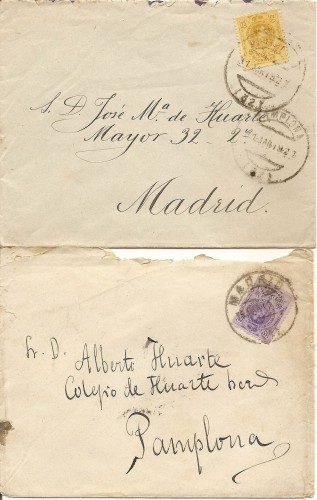 S. D. José Mª de Huarte
Mayor 32 - 2º
Madrid.
MADRID
Sr. D.
Alberto Huarte
Colegio de Huarte herº
Pamplona